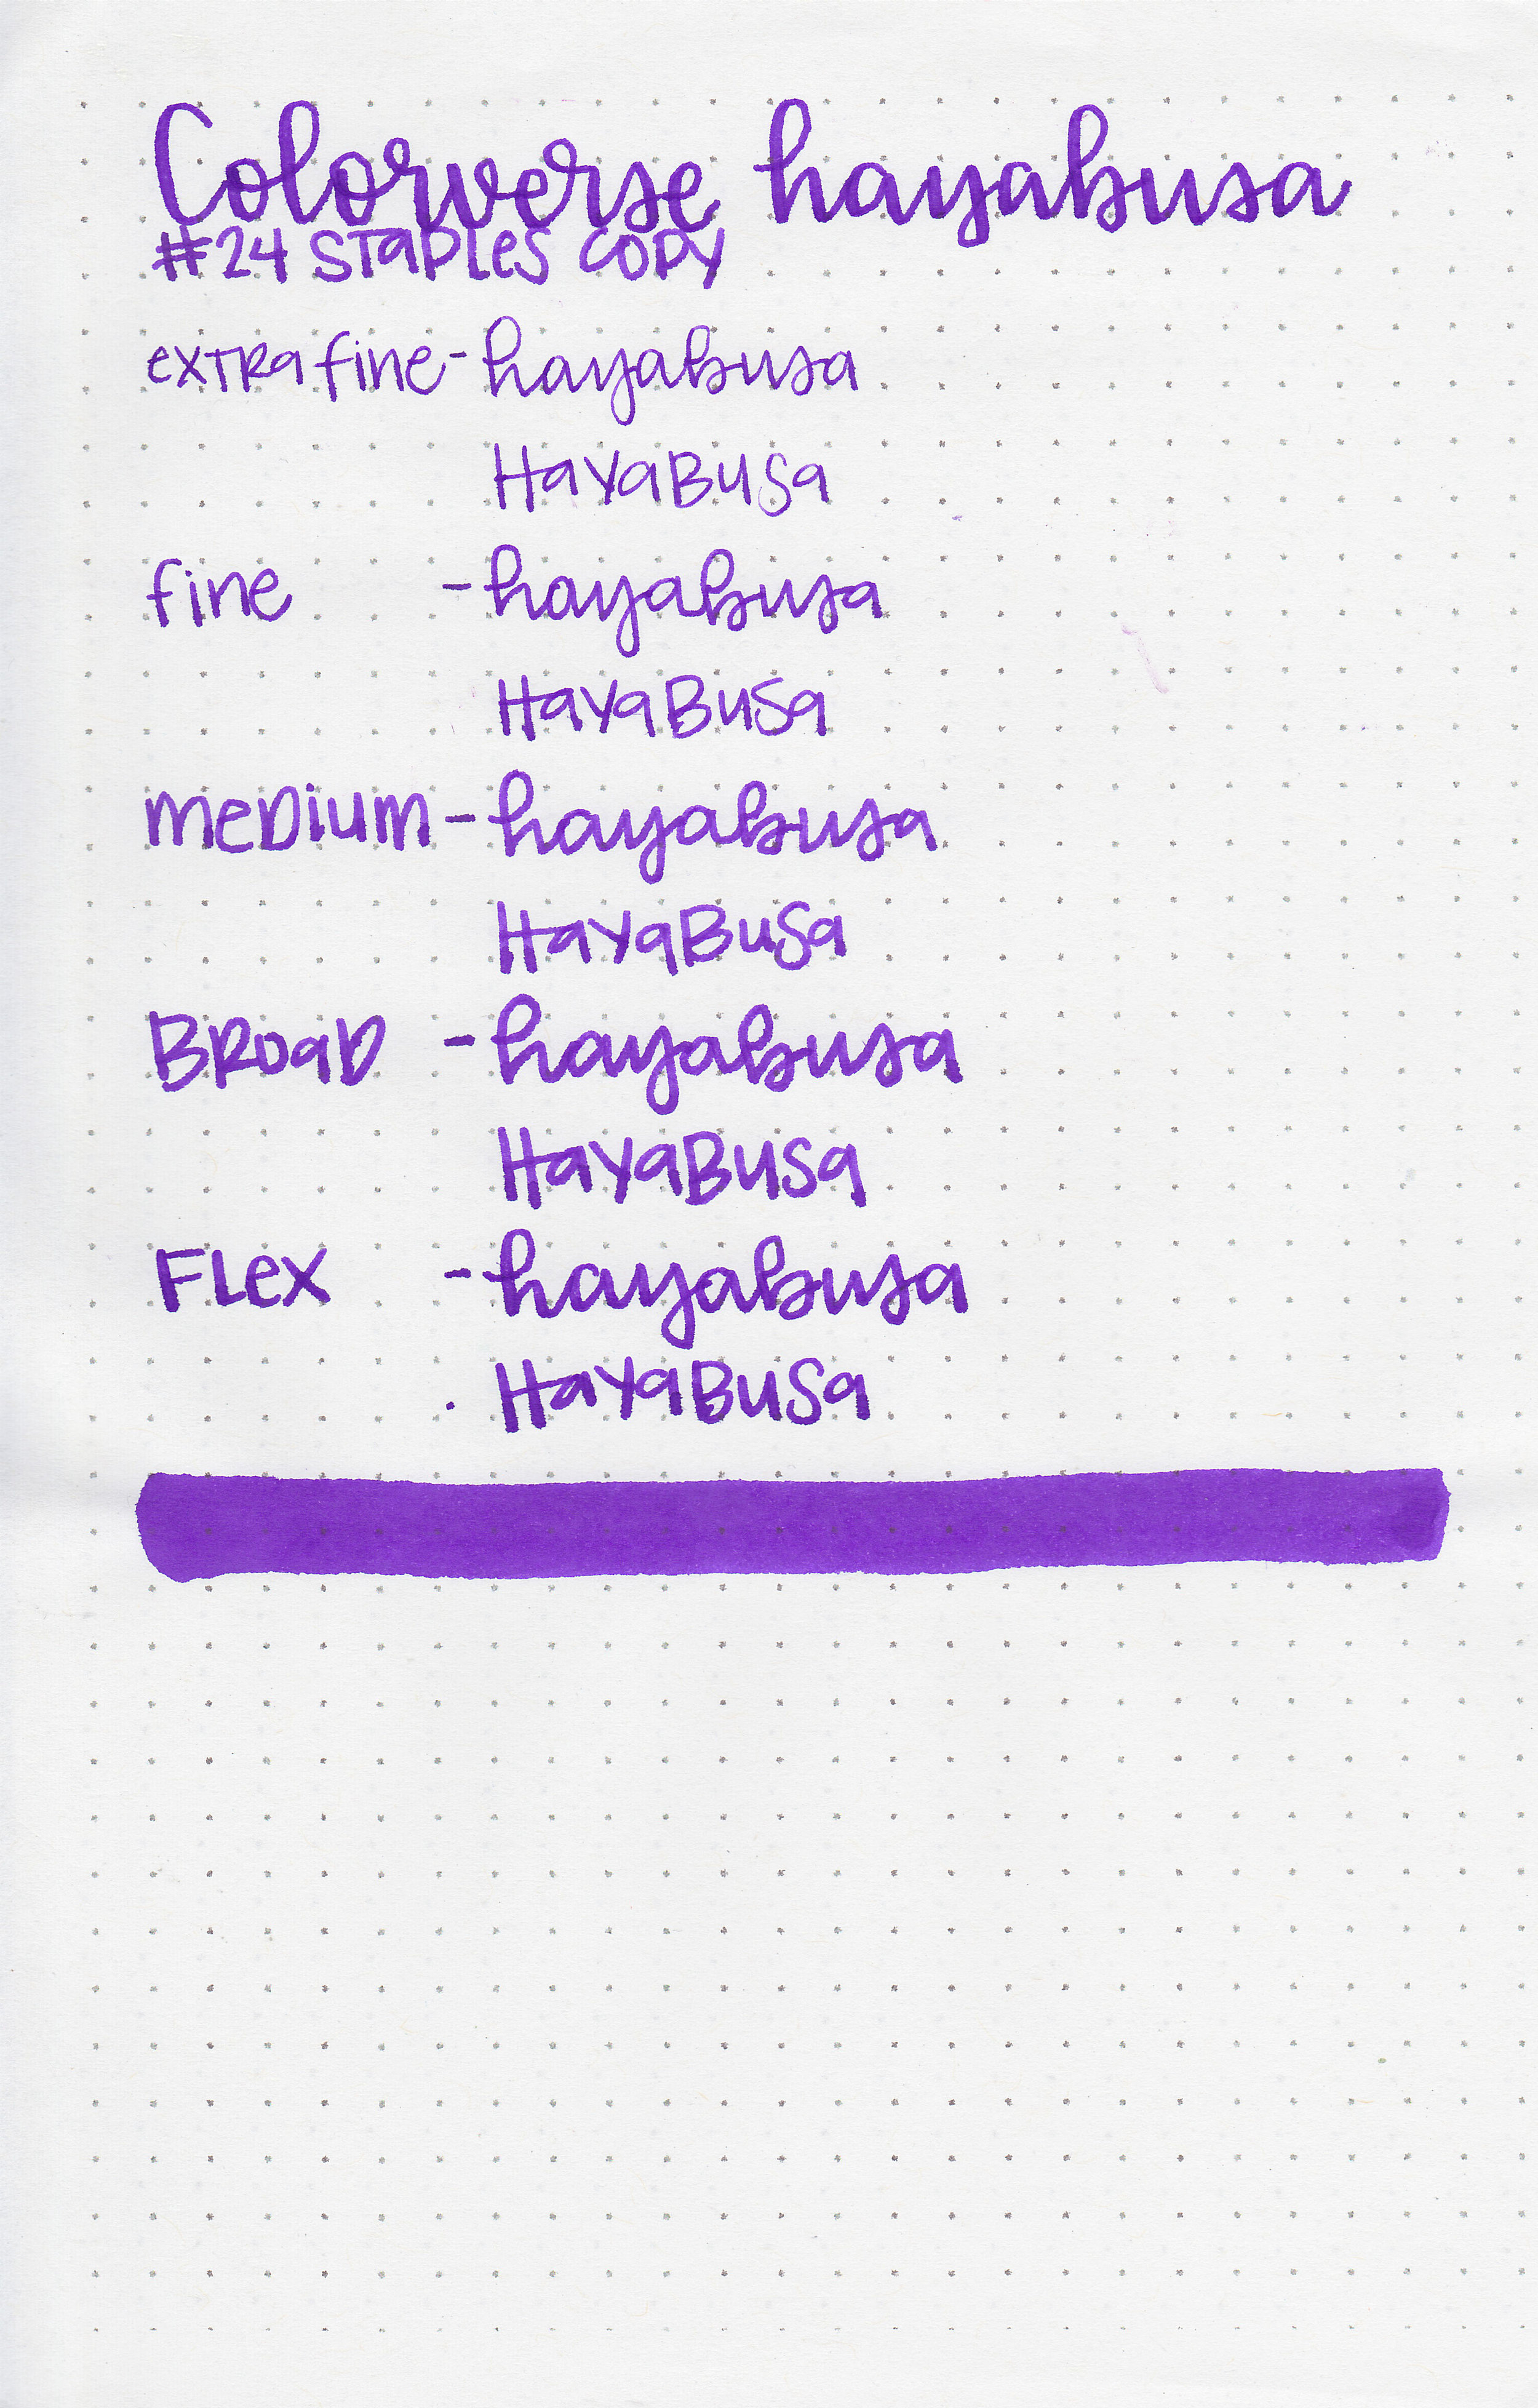 Colorverse hayabusa
#24 STaPLes COPY
exTRa fine - hayabusa
HaYaBUSa
fine - hayabusa
HaYaBUSa
meDium - hayabusa
HaYaBUSa
BRoaD - hayabusa
HaYaBUSa
FLex - hayabusa
HaYaBUSa